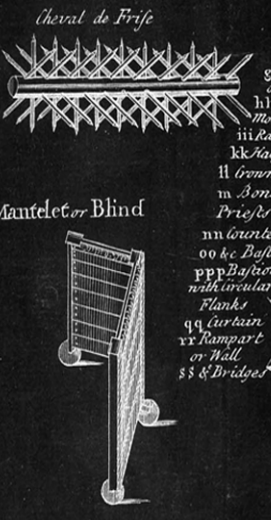 Cheval de Frise
Mantelet or Blind
g
hh
Mo
iii Ra
kk Ha
ll Crown
m Bon
Priests
nn Counte
oo &c Bast
ppp Bastion
with circular
Flanks
qq Curtain
rr Rampart
or Wall
ss & Bridges